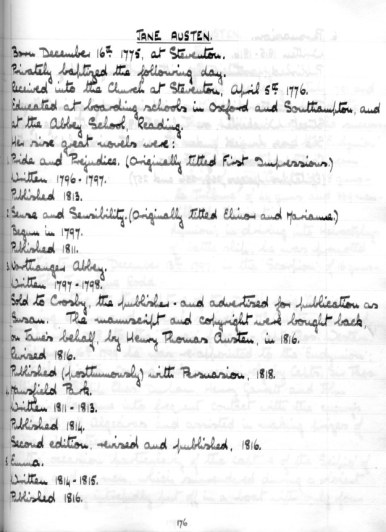 JANE AUSTEN.
Born December 16th 1775, at Steventon.
Privately baptized the following day.
Received into the Church at Steventon, April 5th 1776.
Educated at boarding schools in Oxford and Southampton, and
at the Abbey School, Reading.
Her six great novels were:
1. Pride and Prejudice. (Originally titled First Impressions)
Written 1796-1797.
Published 1813.
2. Sense and Sensibility. (Originally titled Elinor and Marianne)
Begun in 1797.
Published 1811.
3. Northanger Abbey.
Written 1797-1798.
Sold to Crosby, the publisher - and advertized for publication as
Susan. The manuscript and copyright were bought back,
on Jane's behalf, by Henry Thomas Austen, in 1816.
Revised 1816.
Published (posthumously) with Persuasion, 1818.
4. Mansfield Park.
Written 1811-1813.
Published 1814.
Second edition, revised and published, 1816.
5. Emma.
Written 1814-1815.
Published 1816.
176